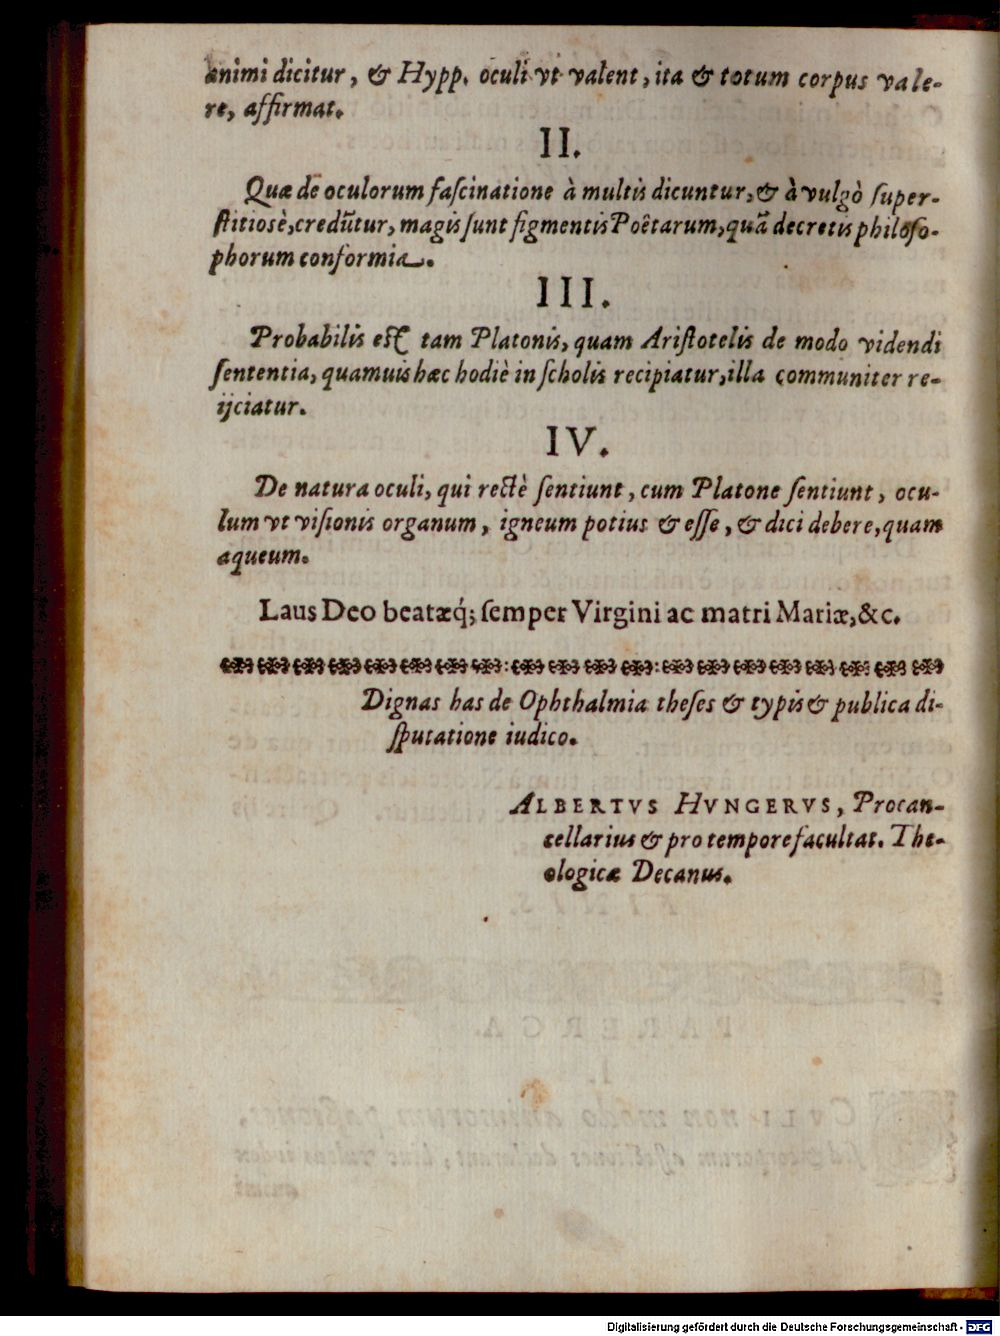 animi dicitur, & Hypp. oculi vt valent, ita & totum corpus vale-
re, affirmat.
II.
Quæ de oculorum faſcinatione à multis dicuntur, & à vulgò ſuper-
ſtitiosè, credũtur, magis ſunt figmentis Poëtarum, quã decretis philoſo-
phorum conformia.
III.
Probabilis eſt tam Platonis, quam Ariſtotelis de modo videndi
ſententia, quamuis hæc hodiè in ſcholis recipiatur, illa communiter re-
ijciatur.
IV.
De natura oculi, qui rectè ſentiunt, cum Platone ſentiunt, ocu-
lum vt viſionis organum, igneum potius & eſſe, & dici debere, quam
aqueum.
Laus Deo beatæq́; ſemper Virgini ac matri Mariæ, &c.
Dignas has de Ophthalmia theſes & typis & publica di-
ſputatione iudico.
ALBERTVS HVNGERVS, Procan-
cellarius & pro tempore facultat. The-
ologicæ Decanus.
Digitalisierung gefördert durch die Deutsche Forschungsgemeinschaft - DFG